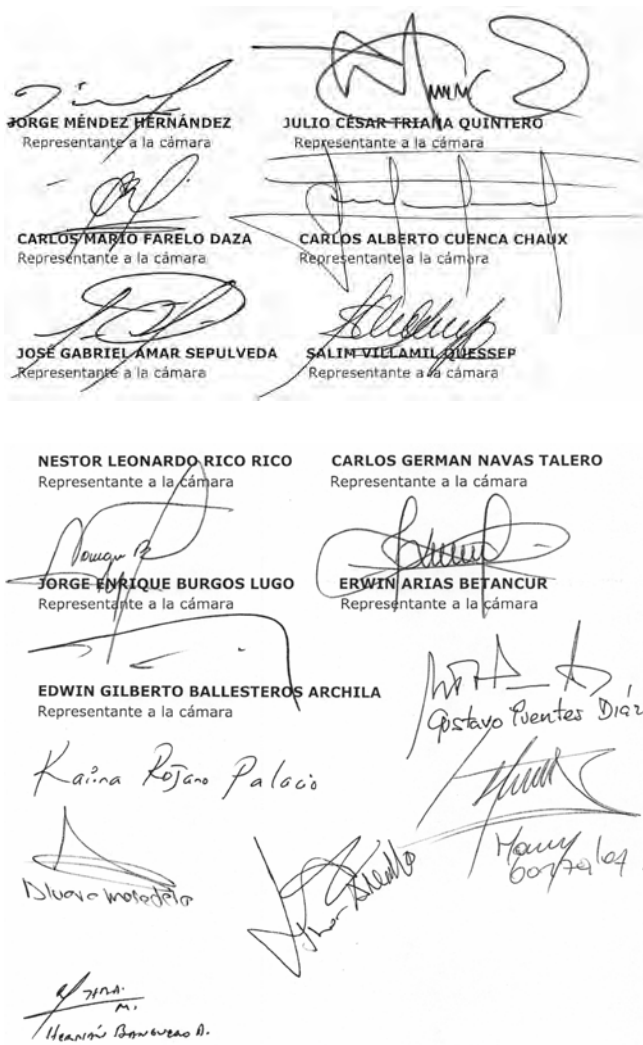 JORGE MÉNDEZ HERNÁNDEZ
Representante a la cámara
JULIO CÉSAR TRIANA QUINTERO
Representante a la cámara
CARLOS MARIO FARELO DAZA
Representante a la cámara
CARLOS ALBERTO CUENCA CHAUX
Representante a la cámara
JOSÉ GABRIEL AMAR SEPULVEDA
Representante a la cámara
SALIM VILLAMIL QUESSEP
Representante a la cámara
NESTOR LEONARDO RICO RICO
Representante a la cámara
CARLOS GERMAN NAVAS TALERO
Representante a la cámara
JORGE ENRIQUE BURGOS LUGO
Representante a la cámara
ERWIN ARIAS BETANCUR
Representante a la cámara
EDWIN GILBERTO BALLESTEROS ARCHILA
Representante a la cámara
Gustavo Puentes Diaz
Karina Rojano Palacio
Hernán Banguero A.